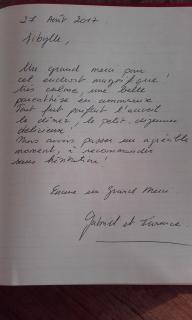 27 Août 2017.
Sibylle,
Un grand merci pour
cet endroit magnifique !
très calme, une belle
parenthèse en amoureux
Tout fut parfait l'accueil
le dîner, le petit-déjeuner
délicieux
Nous avons passer un agréable
moment, à recommander
sans hésitation !
Encore un Grand Merci
Gabriel et